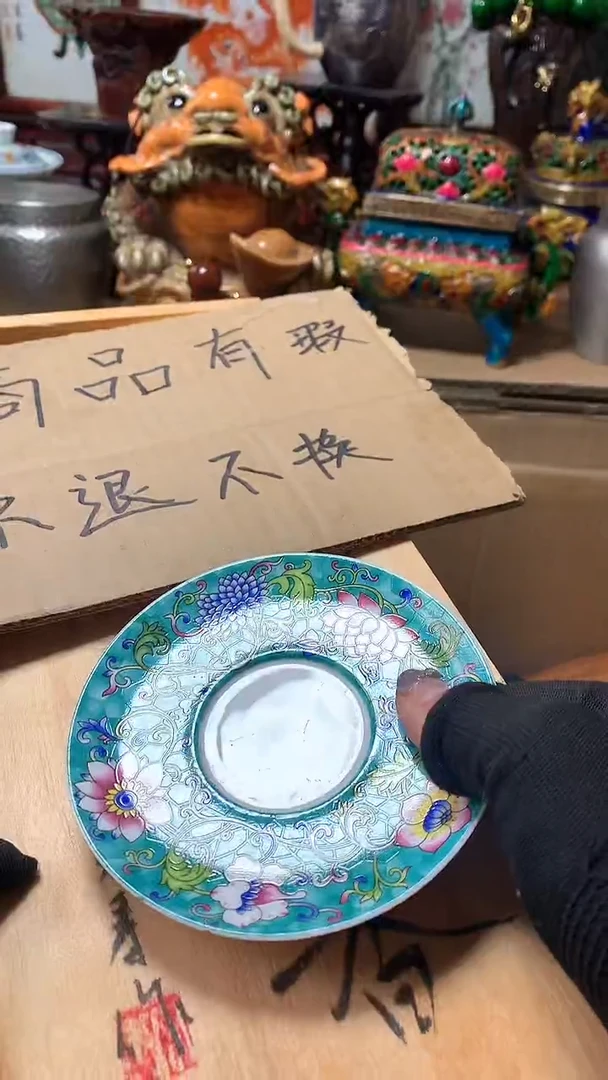 商品有瑕
不退不换